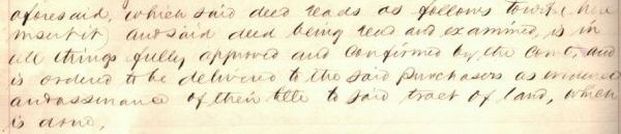 aforesaid, which said deed reads as follows towit (here
insert it) and said deed being read and examined, is in
all things fully approved and confirmed by the Court, and
is ordered to be delivered to the said purchasers as evidence
and assurance of their title to said tract of land, which
is done,